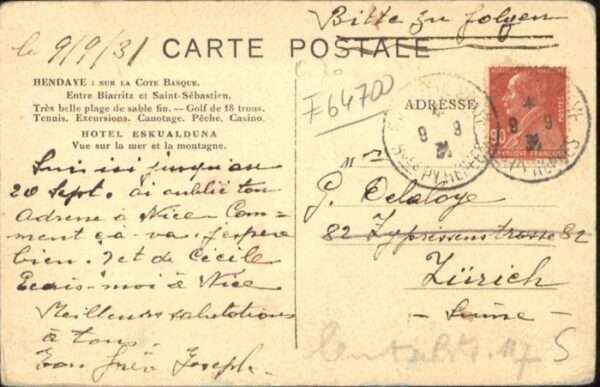 Bitte zu folgen
le 9/9/31
CARTE POSTALE
F64700
HENDAYE : SUR LA COTE BASQUE.
Entre Biarritz et Saint-Sébastien.
Très belle plage de sable fin. — Golf de 18 trous.
Tennis. Excursions. Canotage. Pêche. Casino.
HOTEL ESKUALDUNA
Vue sur la mer et la montagne.
ADRESSE
90
POSTES
8 9
31
8 9
31
Suis ici jusqu'au
20 Sept. ai oublié ton
Adresse à Nice Com=
ment ça va. J'espère
bien. et de Cécile
Ecris-moi à Nice
Meilleures salutations
à tous.
Ton frère Joseph.
Mr
G. Delaloye
82 Zypressenstrasse 82
Zürich
- Suisse -
117 5